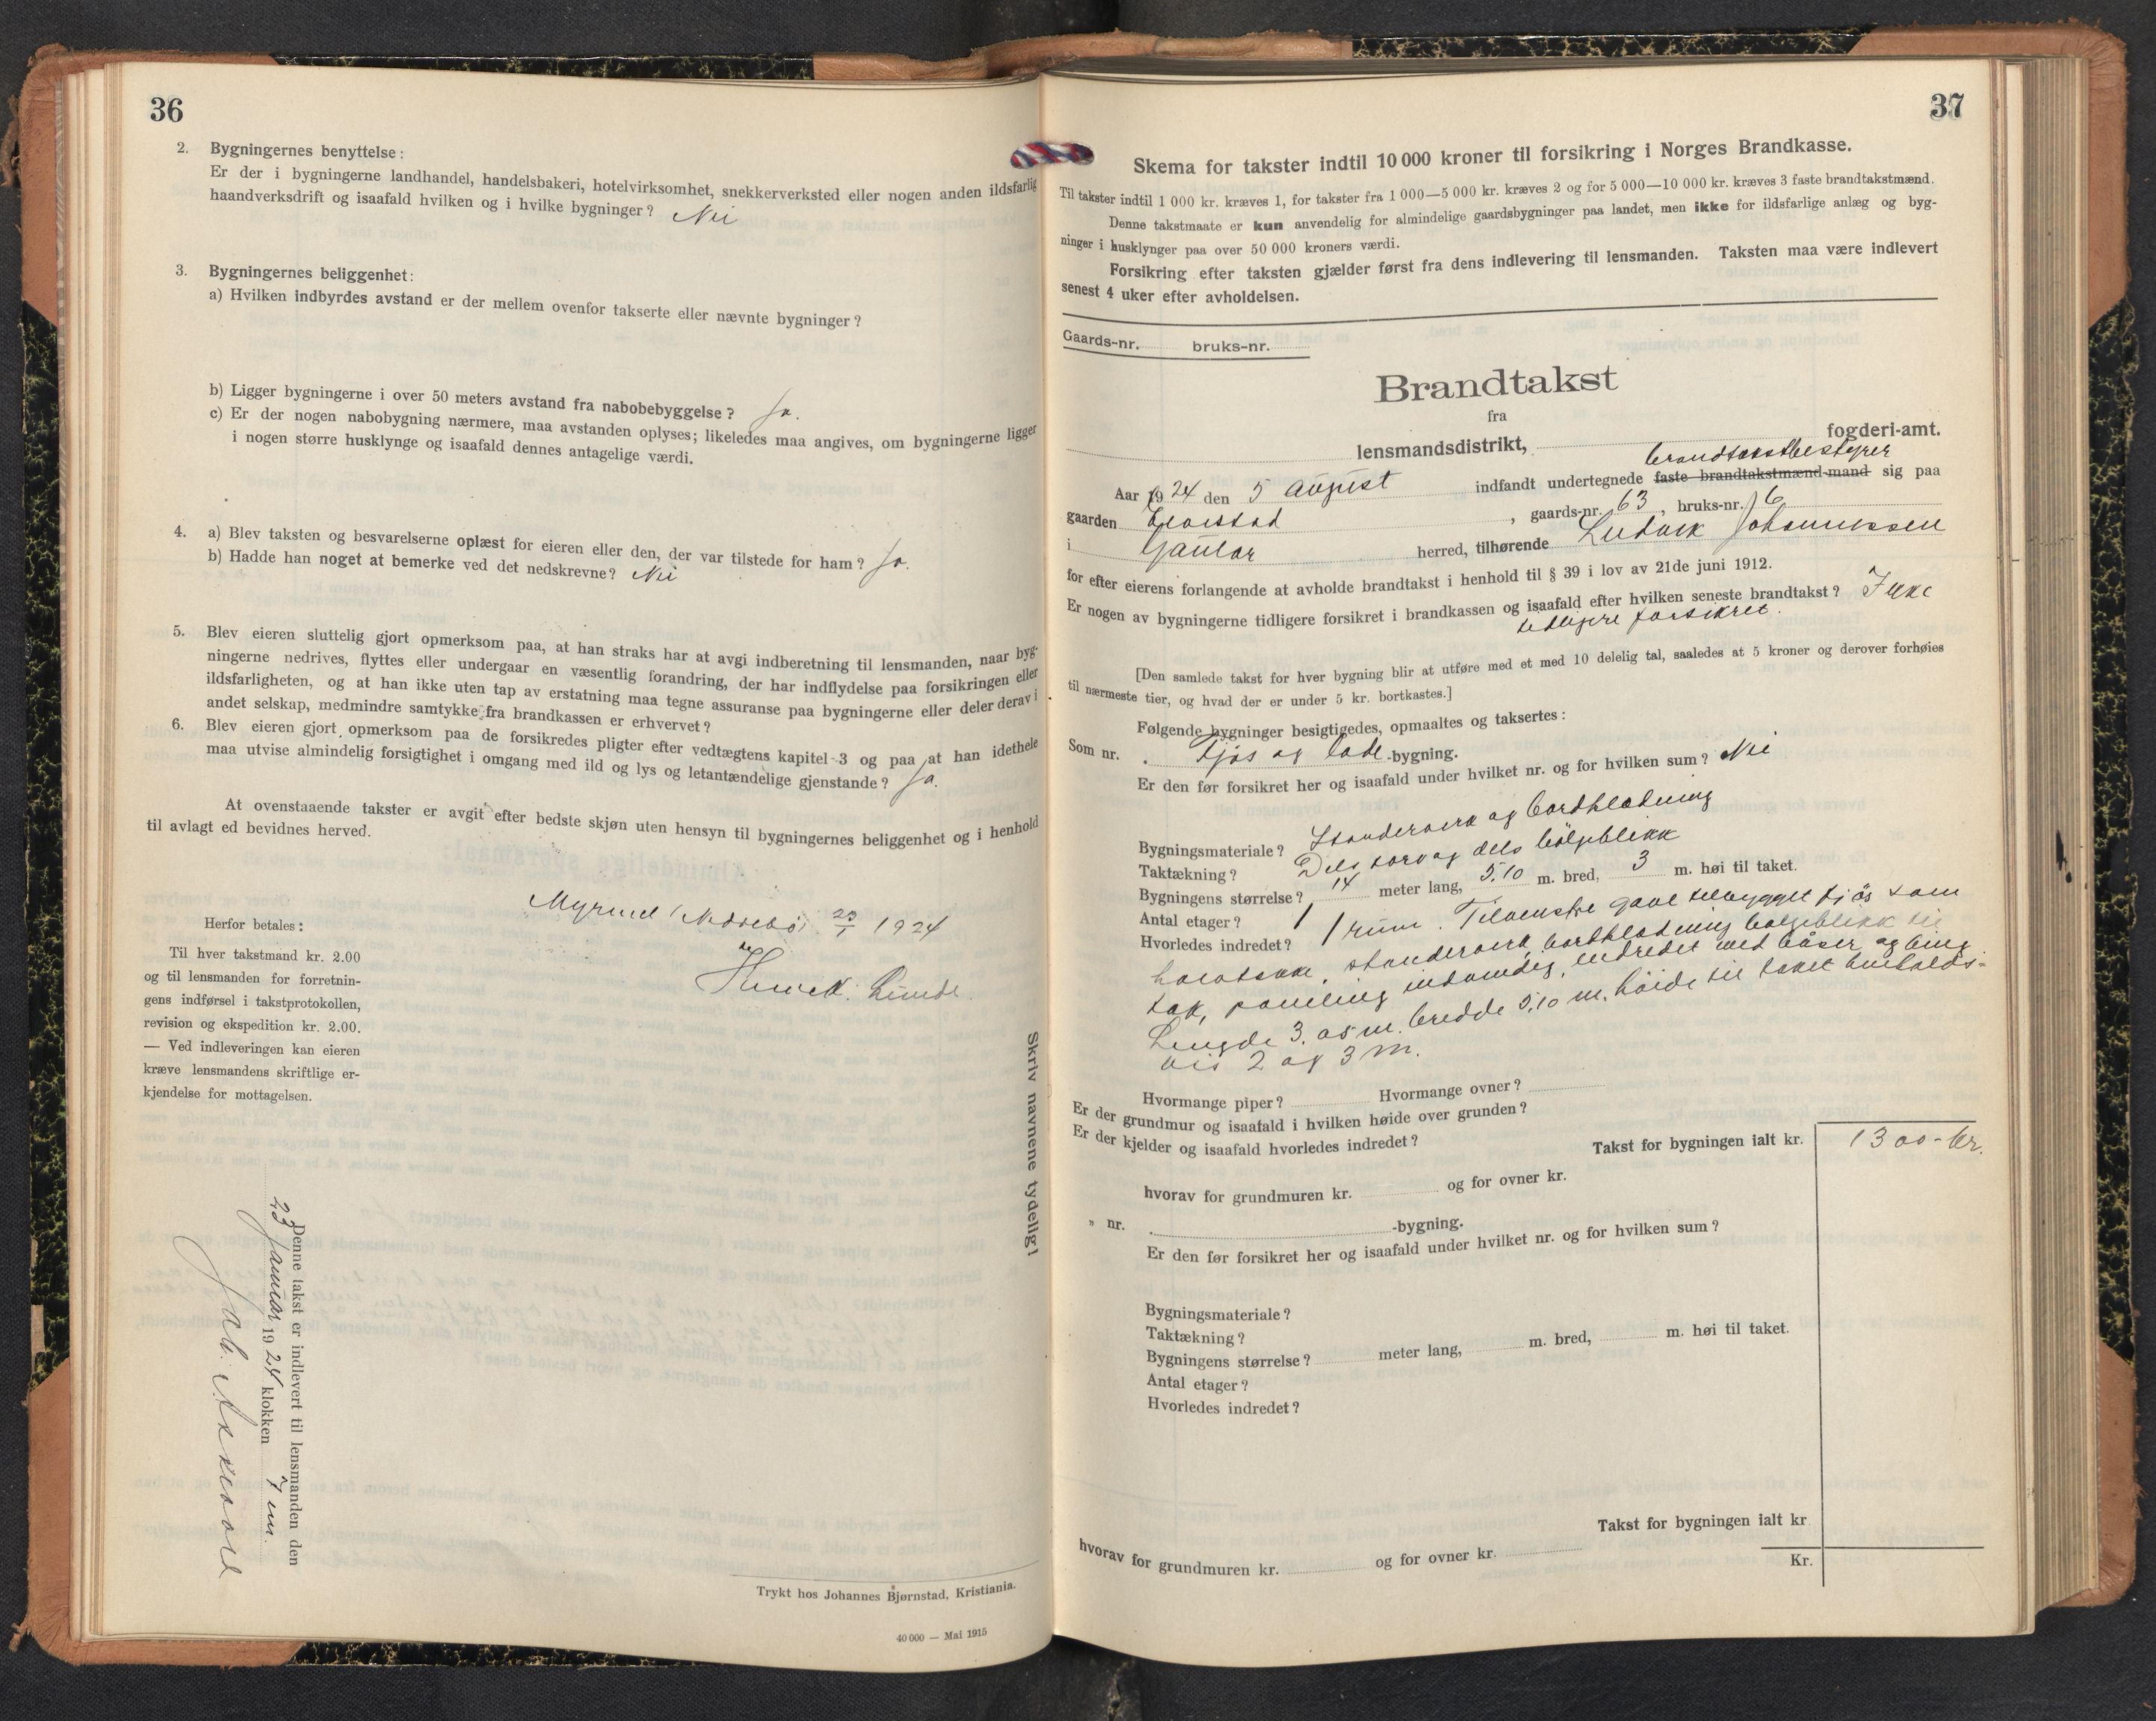 36
2. Bygningernes benyttelse:
Er der i bygningerne landhandel, handelsbakeri, hotelvirksomhet, snekkerverksted eller nogen anden ildsfarlig
haandverksdrift og isaafald hvilken og i hvilke bygninger? Nei
3. Bygningernes beliggenhet:
a) Hvilken indbyrdes avstand er der mellem ovenfor takserte eller nævnte bygninger?
b) Ligger bygningerne i over 50 meters avstand fra nabobebyggelse? Ja.
c) Er der nogen nabobygning nærmere, maa avstanden oplyses; likeledes maa angives, om bygningerne ligger
i nogen større husklynge og isaafald dennes antagelige værdi.
4. a) Blev taksten og besvarelserne oplæst for eieren eller den, der var tilstede for ham? Ja.
b) Hadde han noget at bemerke ved det nedskrevne? Nei
5. Blev eieren sluttelig gjort opmerksom paa, at han straks har at avgi indberetning til lensmanden, naar byg-
ningerne nedrives, flyttes eller undergaar en væsentlig forandring, der har indflydelse paa forsikringen eller
ildsfarligheten, og at han ikke uten tap av erstatning maa tegne assuranse paa bygningerne eller deler derav i
andet selskap, medmindre samtykke fra brandkassen er erhvervet?
6. Blev eieren gjort opmerksom paa de forsikredes pligter efter vedtægtens kapitel 3 og paa at han idethele
maa utvise almindelig forsigtighet i omgang med ild og lys og letantændelige gjenstande? Ja.
At ovenstaaende takster er avgit efter bedste skjøn uten hensyn til bygningernes beliggenhet og i henhold
til avlagt ed bevidnes herved.
23/1 1924
Lunde.
Herfor betales:
Til hver takstmand kr. 2.00
og til lensmanden for forretnin-
gens indførsel i takstprotokollen,
revision og ekspedition kr. 2.00.
— Ved indleveringen kan eieren
kræve lensmandens skriftlige er-
kjendelse for mottagelsen.
Denne takst er indlevert til lensmanden den
23 Januar 1924 klokken 7 em.
Skriv navnene tydelig!
Trykt hos Johannes Bjørnstad, Kristiania.
40 000 — Mai 1915
37
Skema for takster indtil 10 000 kroner til forsikring i Norges Brandkasse.
Til takster indtil 1 000 kr. kræves 1, for takster fra 1 000—5 000 kr. kræves 2 og for 5 000—10 000 kr. kræves 3 faste brandtakstmænd.
Denne takstmaate er kun anvendelig for almindelige gaardsbygninger paa landet, men ikke for ildsfarlige anlæg og byg-
ninger i husklynger paa over 50 000 kroners værdi.
Forsikring efter taksten gjælder først fra dens indlevering til lensmanden. Taksten maa være indlevert
senest 4 uker efter avholdelsen.
Gaards-nr. bruks-nr.
Brandtakst
fra
lensmandsdistrikt, fogderi-amt.
brandtakstbestyrer
Aar 1924 den 5 August indfandt undertegnede faste brandtakstmænd-mand sig paa
gaarden , gaards-nr. 63, bruks-nr. 6
i Gaular herred, tilhørende Ludvik Johannessen
for efter eierens forlangende at avholde brandtakst i henhold til § 39 i lov av 21de juni 1912.
Er nogen av bygningerne tidligere forsikret i brandkassen og isaafald efter hvilken seneste brandtakst? Ikke
tidligere forsikret.
[Den samlede takst for hver bygning blir at utføre med et med 10 delelig tal, saaledes at 5 kroner og derover forhøies
til nærmeste tier, og hvad der er under 5 kr. bortkastes.]
Følgende bygninger besigtigedes, opmaaltes og taksertes:
Som nr. . Fjøs og lade-bygning.
Er den før forsikret her og isaafald under hvilket nr. og for hvilken sum? Nei
Bygningsmateriale? Standerverk og bordklædning
Taktækning? Dels torv og dels bölgeblikk
Bygningens størrelse? 14 meter lang, 5.10 m. bred, 3 m. høi til taket.
Antal etager? 1
Hvorledes indredet? 1 rum. Tilvenstre gavl tilbygget fjøs som
standerverk, bordklædning bølgeblikk til
tak, paneling indvendig, indredet med båser og bing
Lengde 3.05 m. bredde 5.10 m. höide til taket henholds-
vis 2 og 3 m.
Hvormange piper? Hvormange ovner?
Er der grundmur og isaafald i hvilken høide over grunden?
Er der kjelder og isaafald hvorledes indredet?
Takst for bygningen ialt kr. 1300-kr.
hvorav for grundmuren kr. og for ovner kr.
" nr. . -bygning.
Er den før forsikret her og isaafald under hvilket nr. og for hvilken sum?
Bygningsmateriale?
Taktækning?
Bygningens størrelse? meter lang, m. bred, m. høi til taket.
Antal etager?
Hvorledes indredet?
Takst for bygningen ialt kr
hvorav for grundmuren kr. og for ovner kr.
Kr.